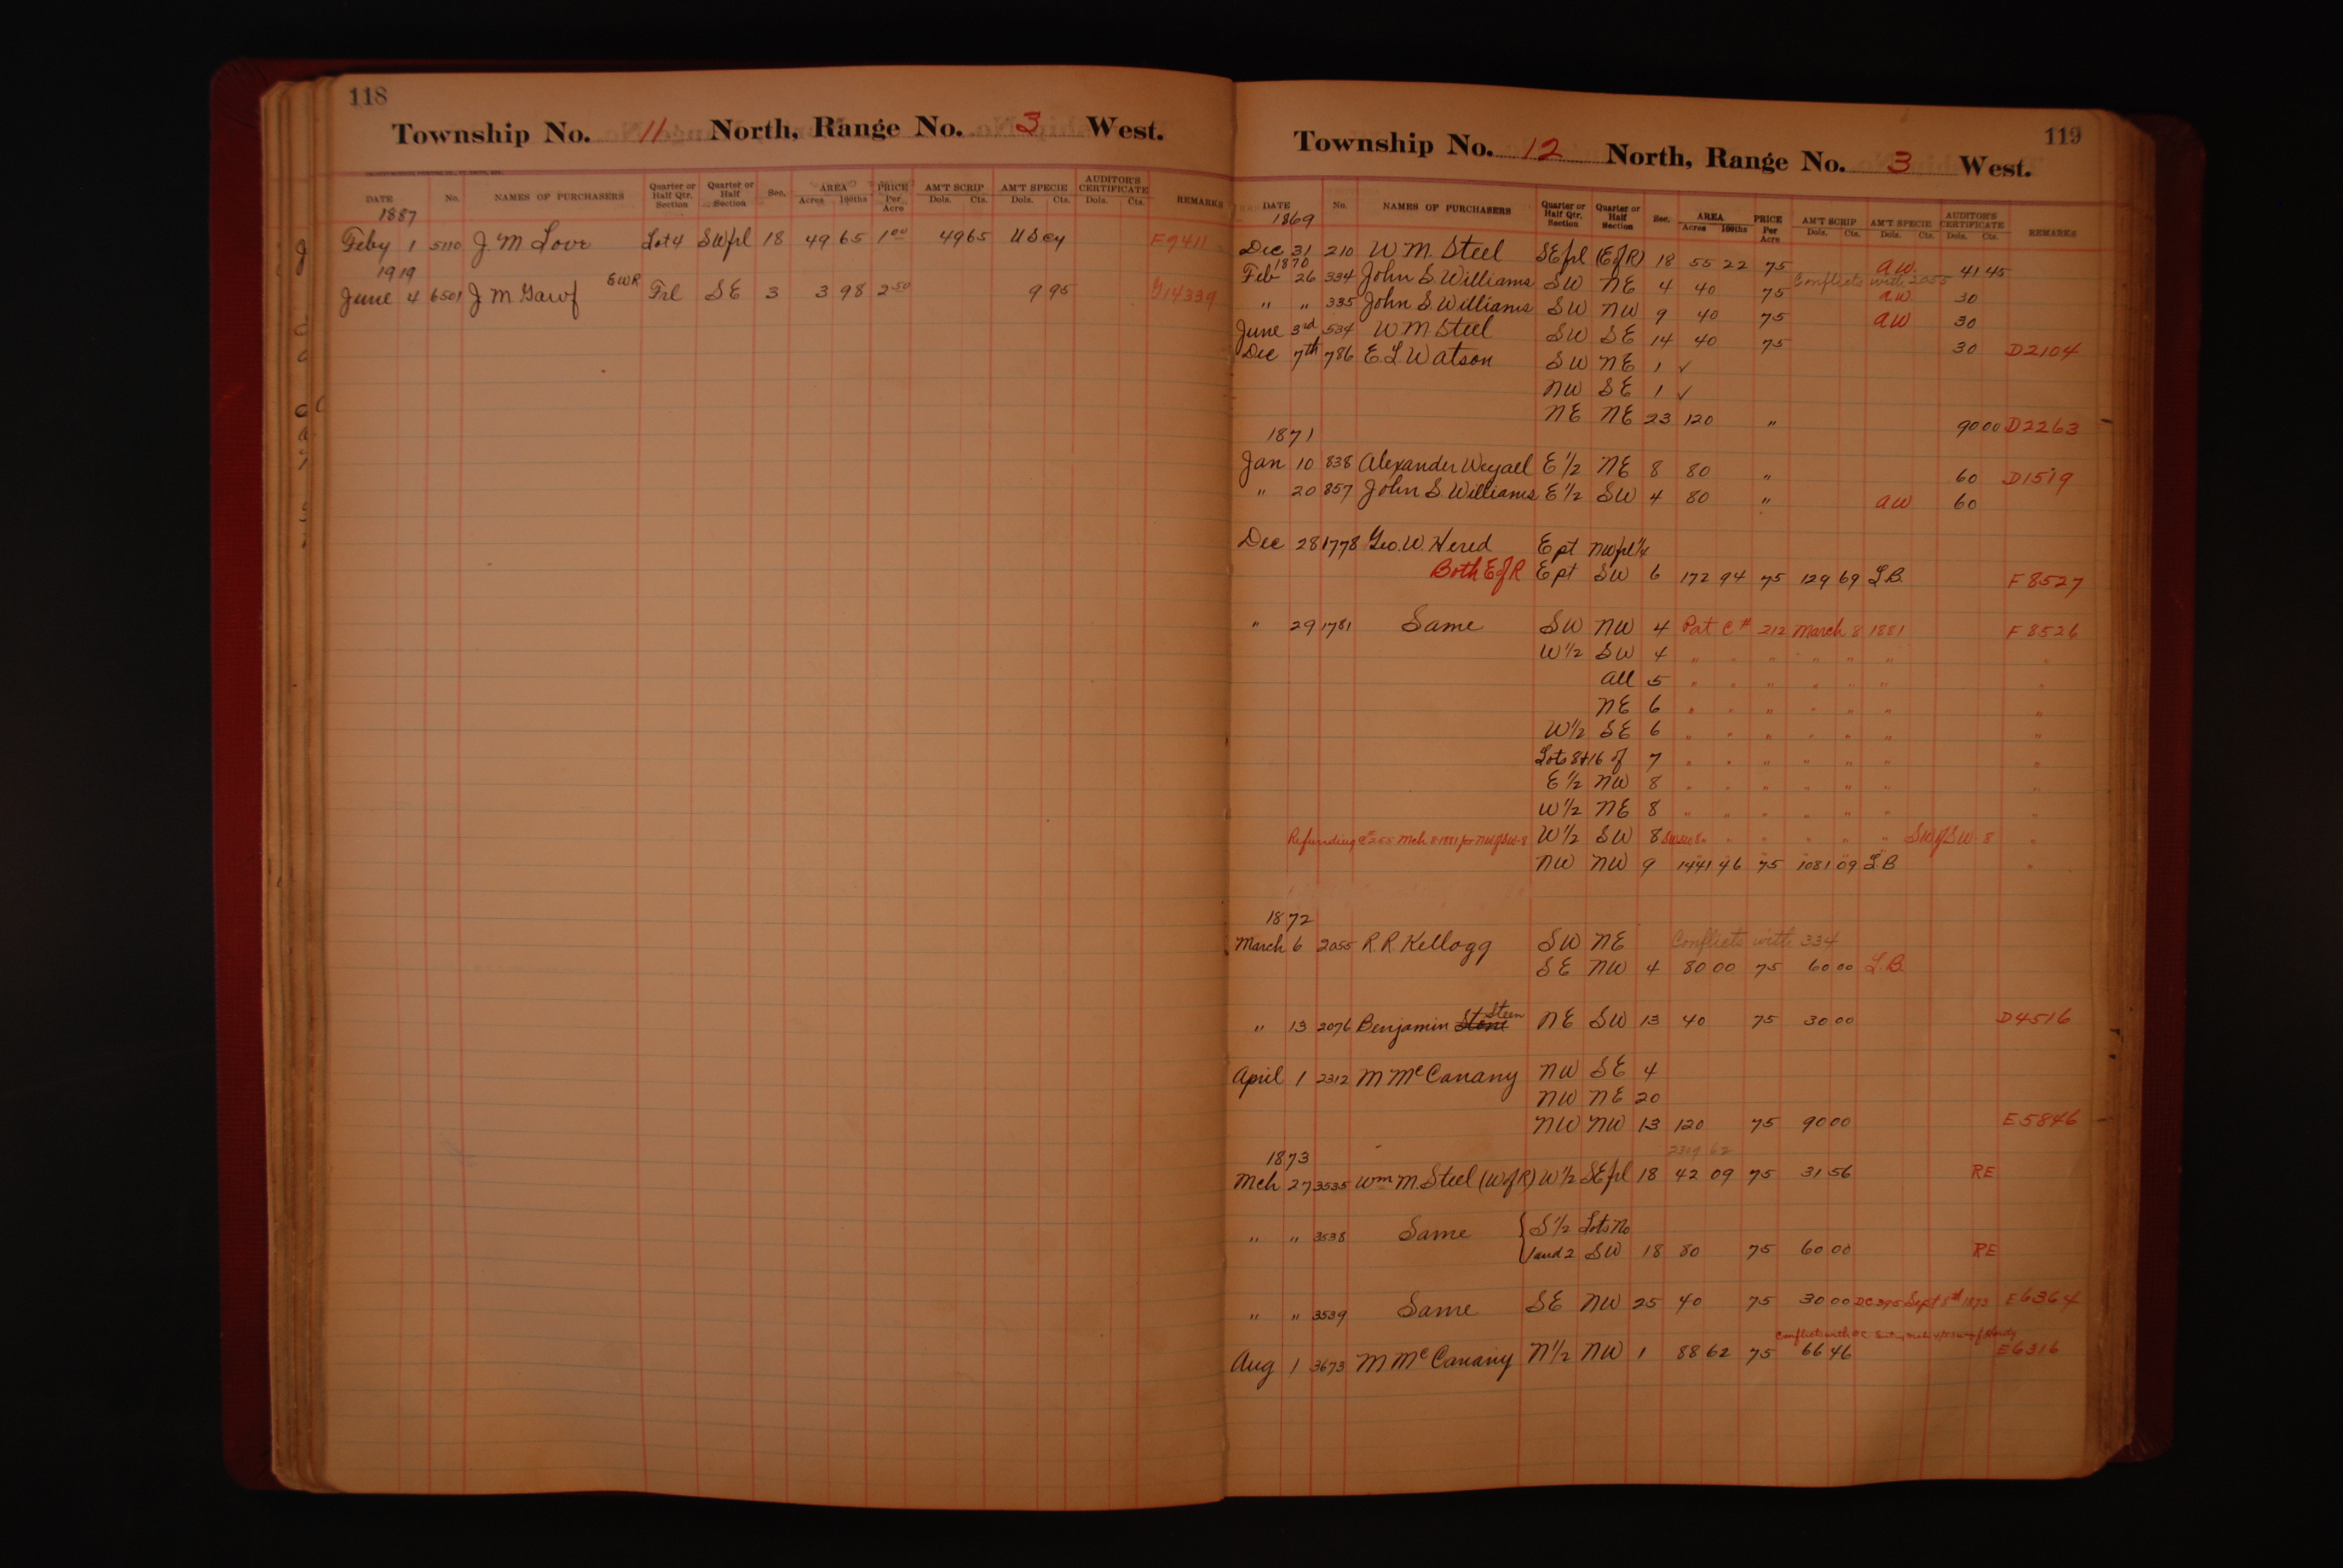 118
Township No. 11 North, Range No. 3 West.
DATE No. NAMES OF PURCHASERS Quarter or Half Qtr. Section Quarter or Half Section Sec. AREA Acres 100ths PRICE Per Acre AM'T SCRIP Dols. Cts. AM'T SPECIE Dols. Cts. AUDITOR'S CERTIFICATE Dols. Cts. REMARKS
1887
Feby 1 5110 J. M Love Lot 4 SWfrl 18 49 65 1 00 49 65 U S Cy F9411
1919
June 4 6501 J M Gawf EWR Frl SE 3 3 98 2 50 9 95 G14339
119
Township No. 12 North, Range No. 3 West.
DATE No. NAMES OF PURCHASERS Quarter or Half Qtr. Section Quarter or Half Section Sec. AREA Acres 100ths PRICE Per Acre AM'T SCRIP Dols. Cts. AM'T SPECIE Dols. Cts. AUDITOR'S CERTIFICATE Dols. Cts. REMARKS
1869
Dec 31 210 W M. Steel SEfrl (E of R) 18 55 22 75 aw. 41 45
1870
Feb 26 334 John S. Williams SW NE 4 40 75 Conflicts with 2055 aw 30
" " 335 John S. Williams SW NW 9 40 75 aw 30
June 3rd 534 W M. Steel SW SE 14 40 75 30 D2104
Dec 7th 786 E. L Watson SW NE 1 ✓
NW SE 1 ✓
NE NE 23 120 " 90 00 D2263
1871
Jan 10 838 Alexander Weyall E 1/2 NE 8 80 " 60 D1519
" 20 857 John S. Williams E 1/2 SW 4 80 " aw 60
Dec 28 1778 Geo. W. Hered E pt NWfrl 1/4
Both E of R E pt SW 6 172 94 75 129 69 L.B. F 8527
" 29 1781 Same SW NW 4 Pat C # 212 March 8 1881 F 8526
W 1/2 SW 4 " " " " " " "
all 5 " " " " " " "
NE 6 " " " " " " "
W 1/2 SE 6 " " " " " " "
Lots 8+16 of 7 " " " " " " "
E 1/2 NW 8 " " " " " " "
W 1/2 NE 8 " " " " " " "
Refunding c# 255 Mch 8 1881 for NW of SW-8 W 1/2 SW 8 " " " " " SW of SW-8 "
NW NW 9 1441 46 75 1081 09 L B "
1872
March 6 2055 R. R. Kellogg SW NE Conflicts with 334
SE NW 4 80 00 75 60 00 L.B.
" 13 2076 Benjamin Stone Steen NE SW 13 40 75 30 00 D4516
April 1 2312 M McCanany NW SE 4
NW NE 20
NW NW 13 120 75 90 00 E5846
2309 62
1873
Mch 27 3535 Wm M. Steel (W of R) W 1/2 SEfrl 18 42 09 75 31 56 RE
" " 3538 Same S 1/2 Lots No
1 and 2 SW 18 80 75 60 00 RE
" " 3539 Same SE NW 25 40 75 30 00 DC 395 Sept 8th 1873 E6364
Conflicts with
Aug 1 3673 M McCanany N 1/2 NW 1 88 62 75 66 46 E6316